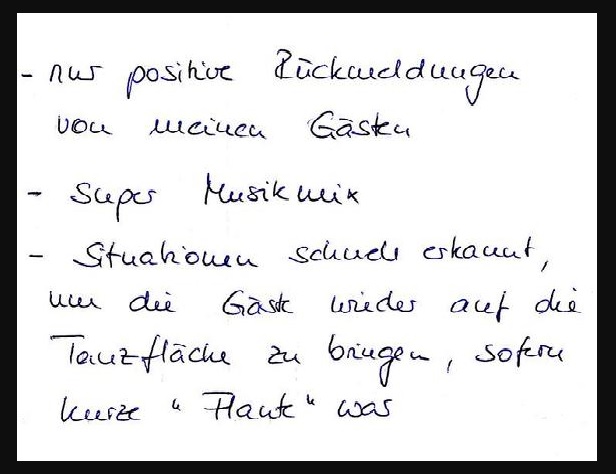 - nur positive Rückmeldungen
von meinen Gästen
- Super Musikmix
- Situationen schnell erkannt,
um die Gäste wieder auf die
Tanzfläche zu bringen, sofern
kurze "Flaute" war